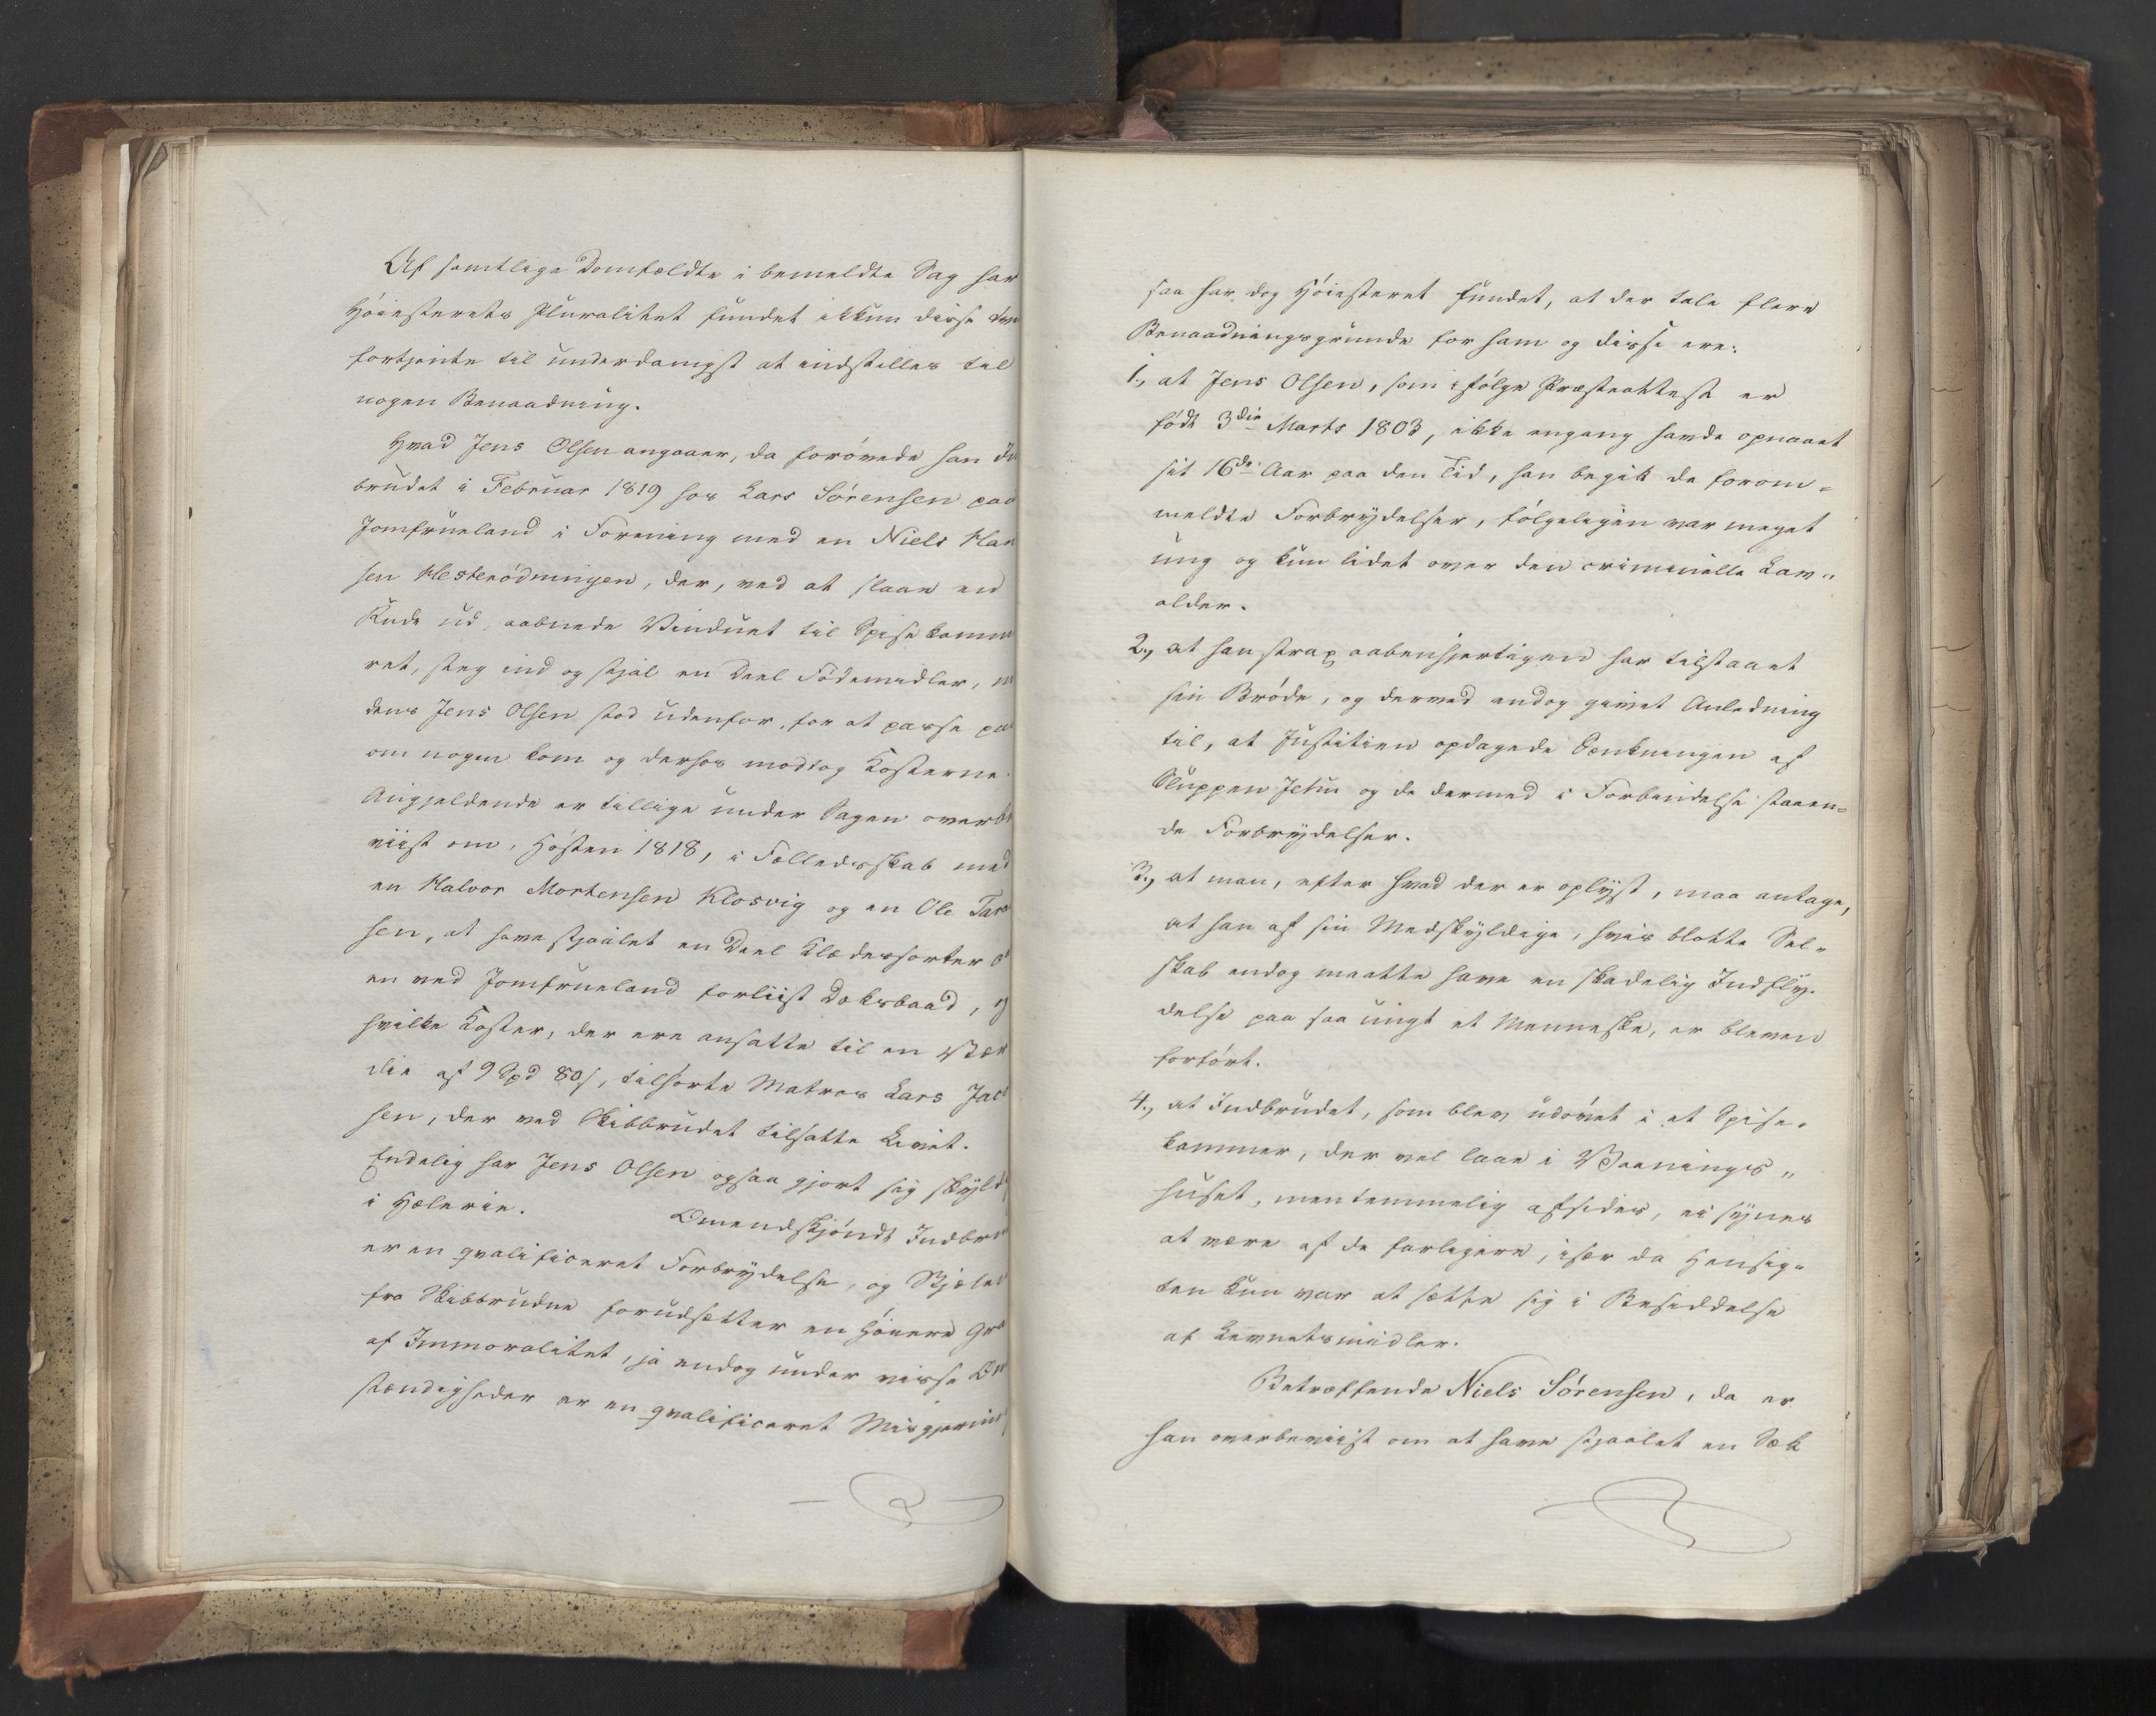 Af samtlige Domfældte i bemeldte Sag har
Høiesterets Pluralitet fundet ikkun disse
fortjente til underdanigst at indstilles til
nogen Benaadning.
Hvad Jens Olsen angaaer, da forøvede han In
brudet i Februar 1819 hos Lars Sørensen paa
Jomfrueland i Forening med en Niels Han
sen Hesterødningen, der, ved at slaae en
Rude ud, aabnede Vinduet til Spisekamme
ret, steg ind og stjal en Deel Fødemidler, m
dens Jens Olsen stod udenfor, for at passe paa
om nogen kom og derhos modtog Kosterne.
Angjeldende er tillige under Sagen overbe
viist om, Høsten 1818, i Fælledsskab med
en Halvor Mortensen Klosvig og en Ole Tar
sen, at have stjaalet en Deel Klædessorter af
en ved Jomfrueland forliist Dæksbaad, og
hvilke Koster, der ere ansatte til en Vær
die af 9 Spd 80 s, tilhørte Matros Lars Jac
sen, der ved Skibbrudet tilsatte Livet.
Endelig har Jens Olsen ogsaa gjort sig skyldi
i Hælerie. Omendskjøndt Indbru
er en qvalificeret Forbrydelse, og Stjælen
fra Skibbrudne forudsætter en høiere Gra
af Immoralitet, ja endog under visse Om
stændigheder er en qvalificeret Misgjernin
saa har dog Høiesteret fundet, at der tale flere
Benaadningsgrunde for ham og disse ere:
1., at Jens Olsen, som ifølge Præsteattest er
født 3die Marts 1803, ikke engang havde opnaaet
sit 16de Aar paa den Tid, han begik de forom-
meldte Forbrydelser, følgeligen var meget
ung og kun lidet over den criminelle Lav-
alder.
2., at han strax aabenhjertigen har tilstaaet
sin Brøde, og derved endog givet Anledning
til, at Justitien opdagede Sænkningen af
Sluppen Jehu og de dermed i Forbindelse staaen-
de Forbrydelser.
3., at man, efter hvad der er oplyst, maa antage,
at han af sin Medskyldige, hvis blotte Sel-
skab endog maatte have en skadelig Indfly-
delse paa saa ungt et Menneske, er bleven
forført.
4., at Indbrudet, som blev udøvet i et Spise-
kammer, der vel laae i Vaanings-
huset, men temmelig afsides, ei synes
at være af de farligere, især da Hensig-
ten kun var at sætte sig i Besiddelse
af Levnetsmidler.
Betræffende Niels Sørensen, da er
han overbeviist om at have stjaalet en Sæk